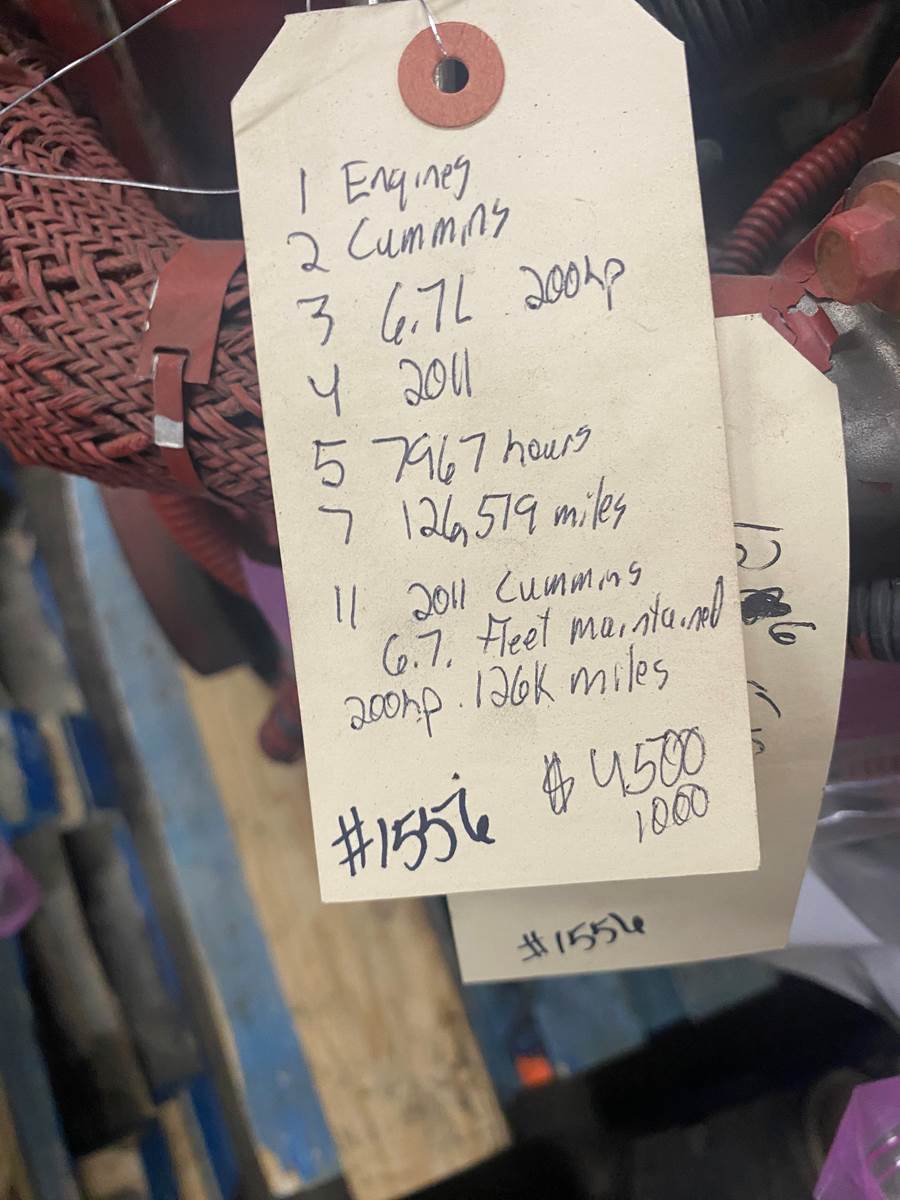 1 Engines
2 Cummins
3 6.7L 200hp
4 2011
5 7967 hours
7 126,519 miles
11 2011 Cummins
6.7. Fleet maintained
200hp. 126K miles
$4500
1000
#1556
#1556